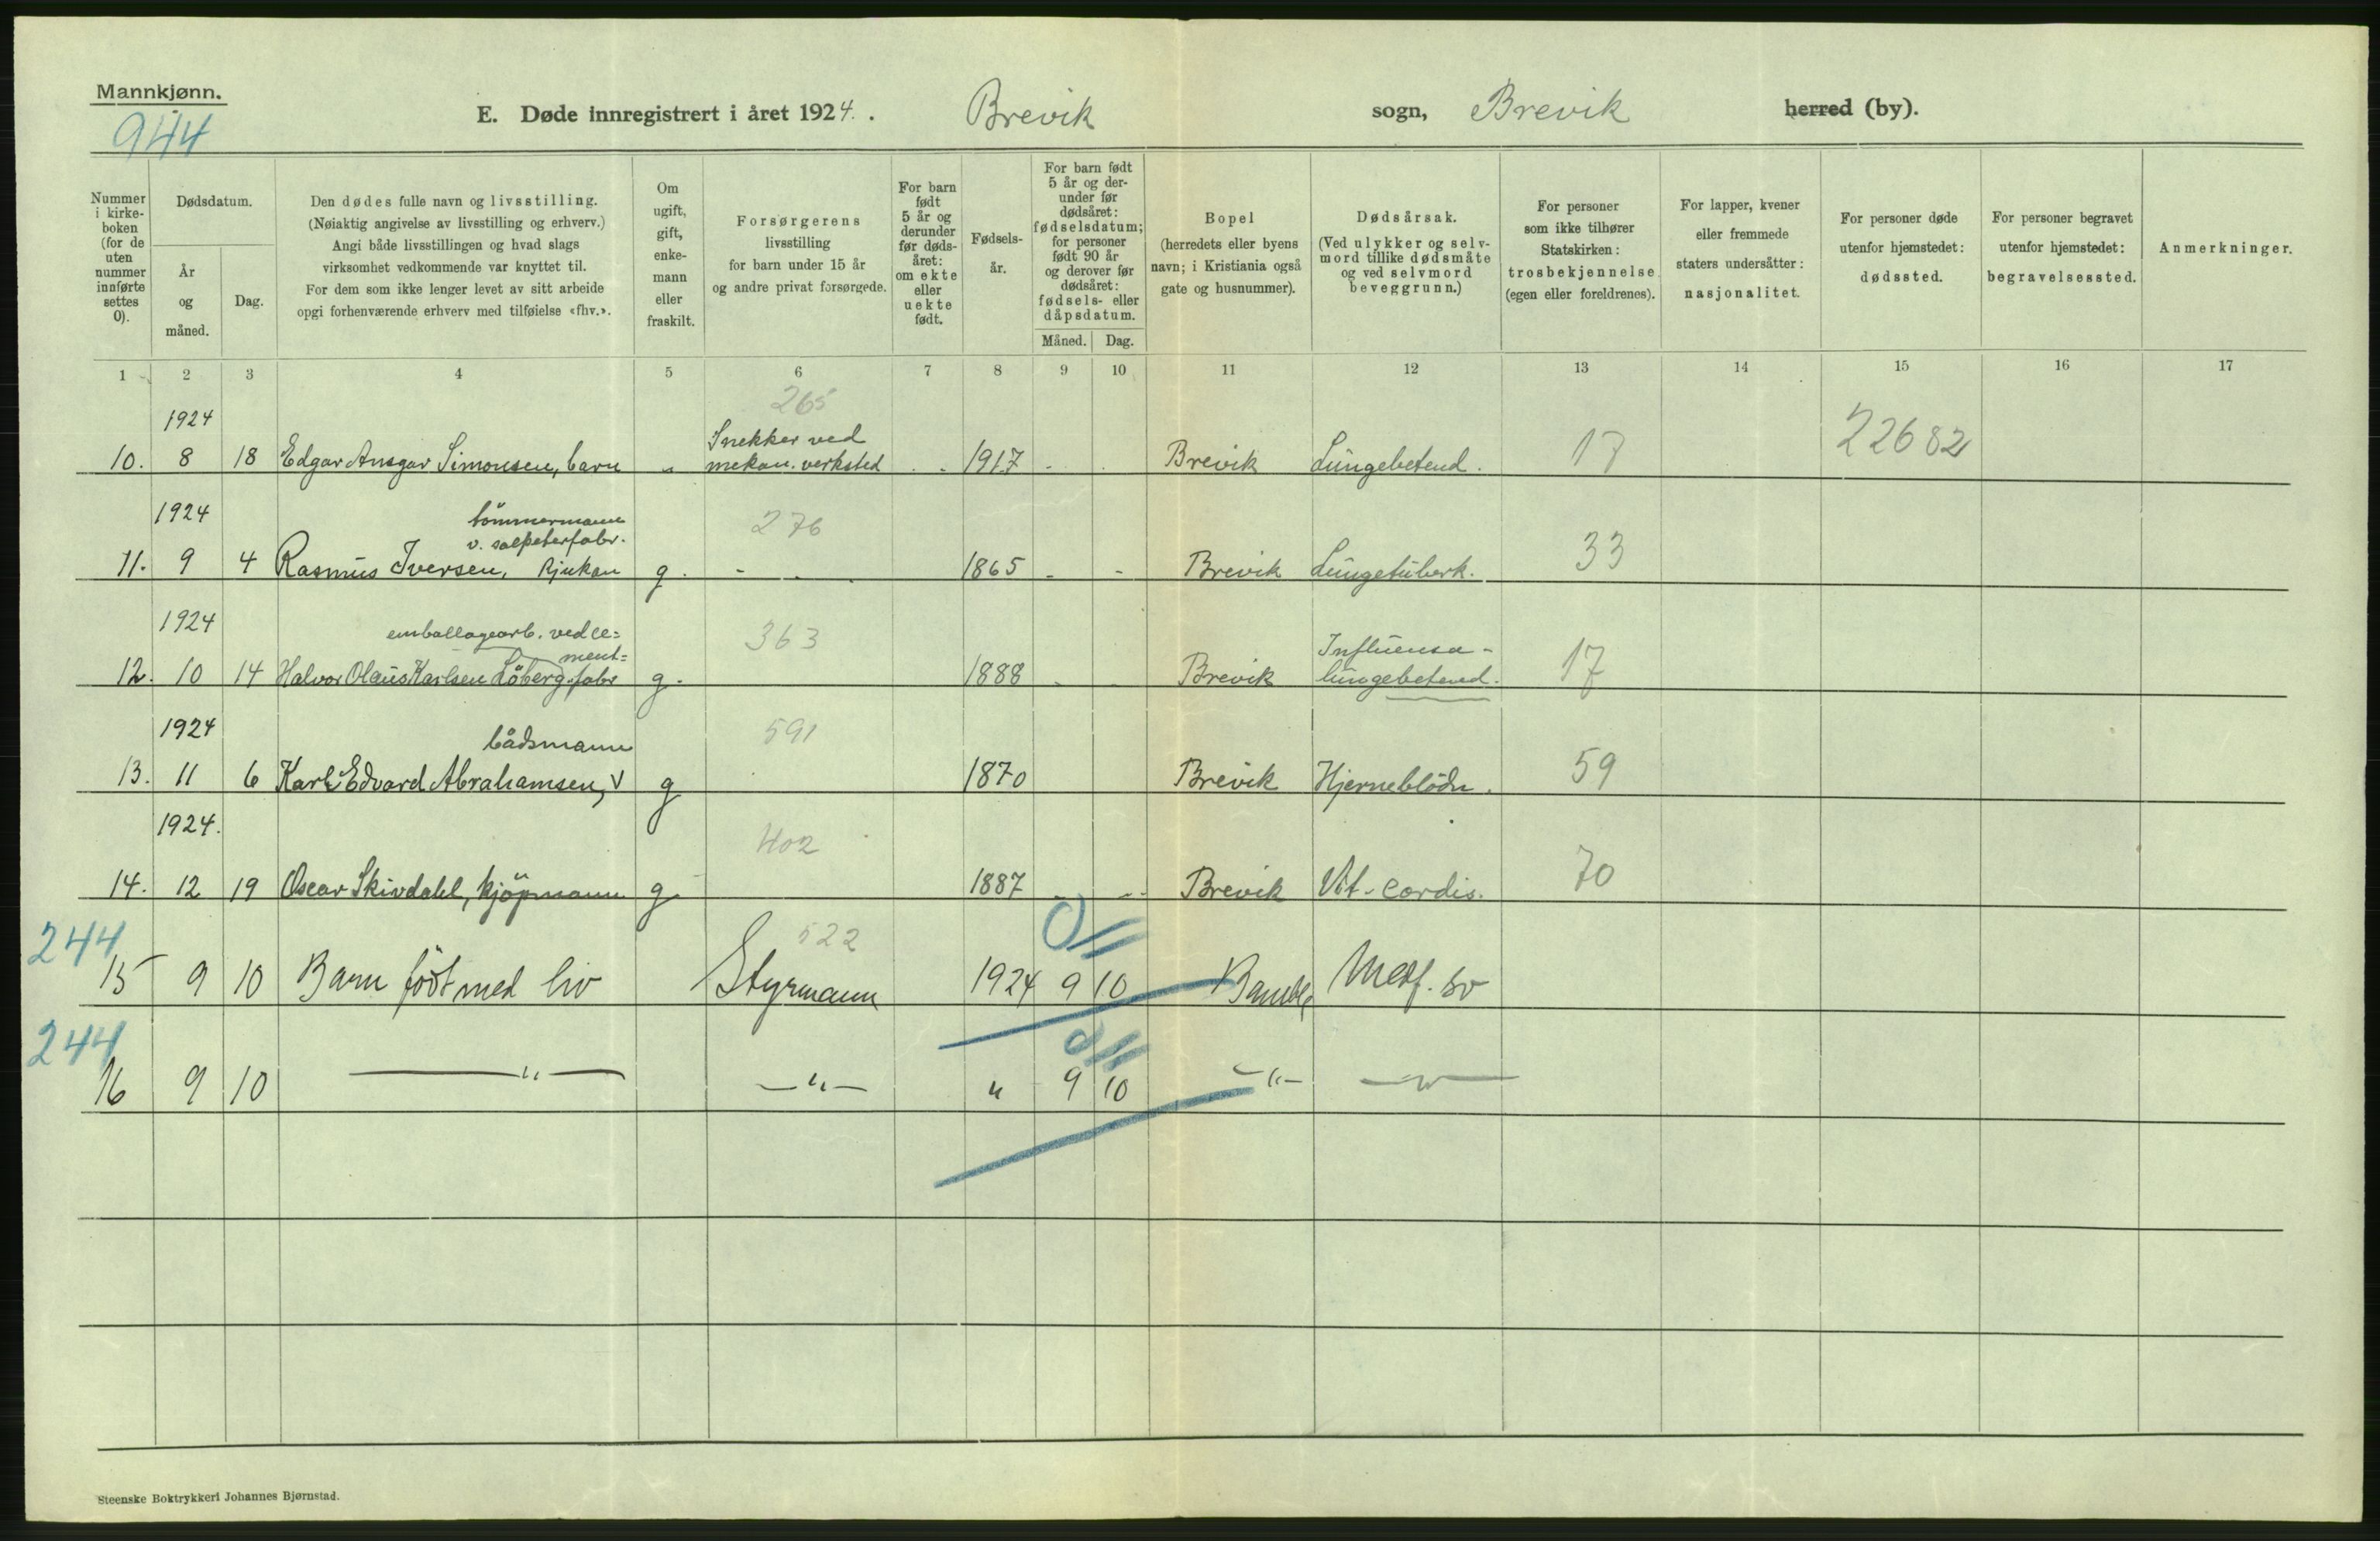 Mannkjønn.
944
E. Døde innregistrert i året 1924. Brevik sogn, Brevik herred (by).
Nummer i kirke-boken (for de uten nummer innførte settes 0).
Dødsdatum.
År og måned.
Dag.
Den dødes fulle navn og livsstilling.
(Nøiaktig angivelse av livsstilling og erhverv.)
Angi både livsstillingen og hvad slags
virksomhet vedkommende var knyttet til.
For dem som ikke lenger levet av sitt arbeide
opgi forhenværende erhverv med tilføielse «fhv.».
Om ugift, gift, enke-mann eller fraskilt.
Forsørgerens
livsstilling
for barn under 15 år
og andre privat forsørgede.
For barn født 5 år og derunder før døds-året: om ekte eller uekte født.
Fødsels-år.
For barn født 5 år og der-under før dødsåret: fødselsdatum; for personer født 90 år og derover før dødsåret: fødsels- eller dåpsdatum.
Måned.
Dag.
Bopel
(herredets eller byens
navn; i Kristiania også
gate og husnummer).
Dødsårsak.
(Ved ulykker og selv-
mord tillike dødsmåte
og ved selvmord
beveggrunn.)
For personer
som ikke tilhører
Statskirken:
trosbekjennelse
(egen eller foreldrenes).
For lapper, kvener
eller fremmede
staters undersåtter:
nasjonalitet.
For personer døde
utenfor hjemstedet:
dødssted.
For personer begravet
utenfor hjemstedet:
begravelsessted.
Anmerkninger.
1 2 3 4 5 6 7 8 9 10 11 12 13 14 15 16 17
265
1924 Snekker ved 22682
10. 8 18 Edgar Ansgar Simonsen, barn " mekan. verksted 1917 Brevik Lungebetend. 17
1924 tömmermann 276
v. salpeterfabr. 33
11. 9 4 Rasmus Iversen, Rjukan g. - 1865 - - Brevik Lungetuberk.
1924 emballagearb. ved ce= 363 Influensa-
ment=
12. 10 14 Halvor Olaus Karlsen Löberg fabr g. 1888 Brevik lungebetend. 17
1924 bådsmann 591
13. 11 6 Karl Edvard Abrahamsen, v g 1870 Brevik Hjerneblödn. 59
1924. 402
14. 12 19 Oscar Skivdahl, kjöpmann g 1887 Brevik Vit-cordis. 70
244 522 0
15 9 10 Barn födt med liv Styrmann 1924 9 10 Bamble Medf. sv
244
16 9 10 —"— —"— " 9 10 —"— —"—
Steenske Boktrykkeri Johannes Bjørnstad.